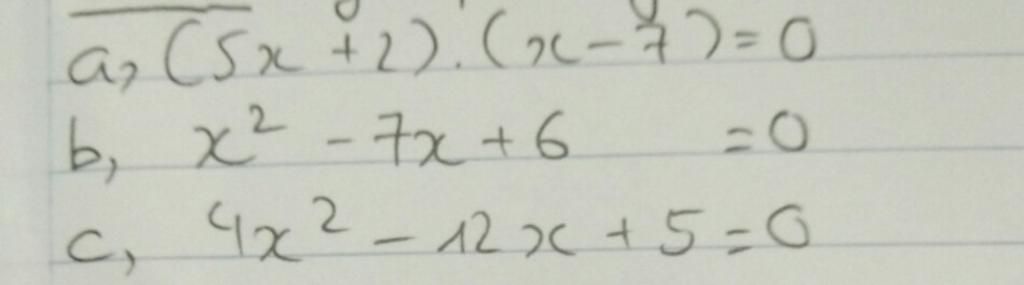 a, (5x + 2).(x - 7) = 0
b, x² - 7x + 6 = 0
c, 4x² - 12x + 5 = 0